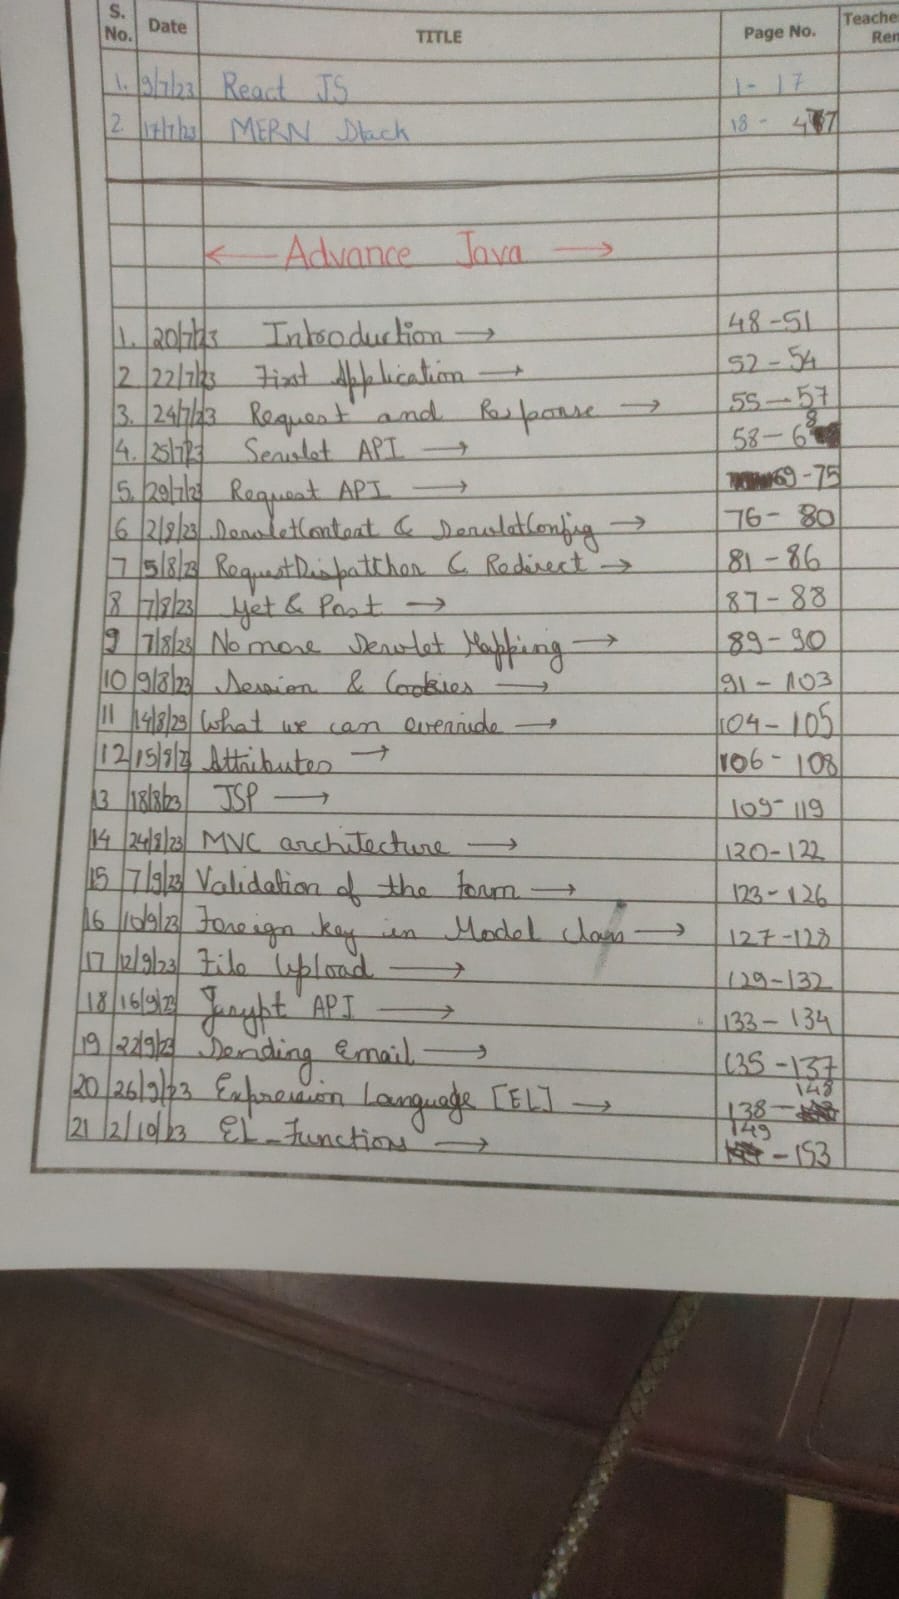 S. No. Date TITLE Page No. Teache Rem
1. 9/7/23 React JS 1- 17
2. 17/7/23 MERN Stack 18 - 47
← Advance Java →
1. 20/7/23 Introduction → 48-51
2 22/7/23 First Application → 52-54
3. 24/7/23 Request and Response → 55-57
4. 25/7/23 Servlet API → 58-68
5. 29/7/23 Request API → 69-75
6 2/8/23 ServletContext & ServletConfig → 76- 80
7 5/8/23 RequestDispatcher & Redirect → 81-86
8 7/8/23 Get & Post → 87-88
9 7/8/23 No more Servlet Mapping → 89-90
10 9/8/23 Session & Cookies → 91-103
11 14/8/23 What we can override → 104-105
12 15/8/23 Attributes → 106-108
13 18/8/23 JSP → 109-119
14 24/8/23 MVC architecture → 120-122
15 7/9/23 Validation of the form → 123-126
16 10/9/23 Foreign key in Model class → 127-128
17 12/9/23 File Upload → 129-132
18 16/9/23 Jasypt API → 133-134
19 22/9/23 Sending Email → 135-137
20 26/9/23 Expression Language [EL] → 138-148
21 2/10/23 EL_Functions → 149-153